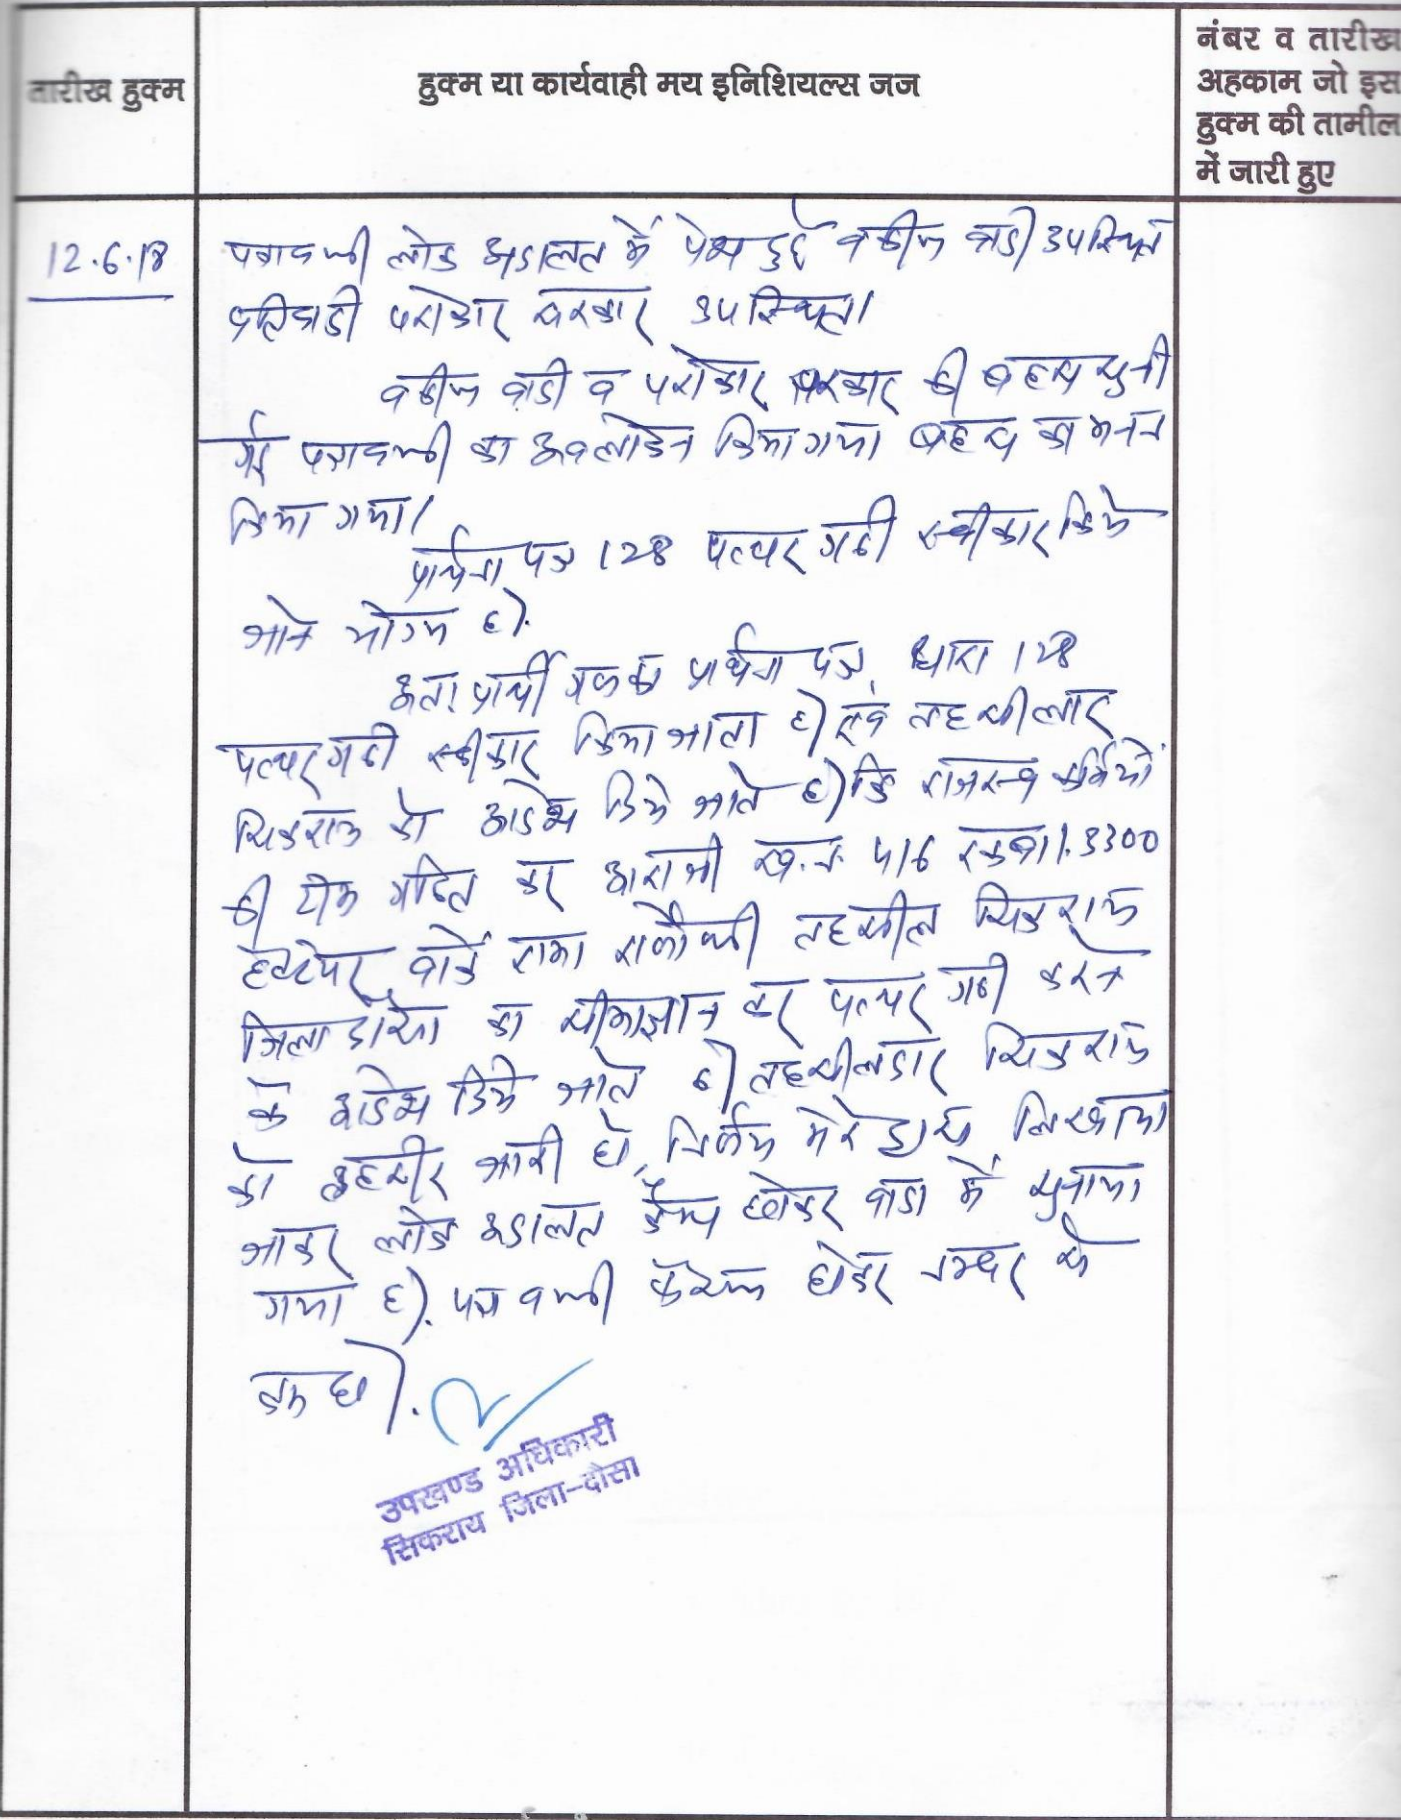 तारीख हुक्म
हुक्म या कार्यवाही मय इनिशियल्स जज
नंबर व तारीख
अहकाम जो इस
हुक्म की तामील
में जारी हुए
12.6.18
पत्रावली लोक अदालत में पेश हुई वकील वादी उपस्थित
प्रतिवादी परोकार सरकार उपस्थित।
वकील वादी व परोकार सरकार की बहस सुनी
गई पत्रावली का अवलोकन किया गया बहस का मनन
किया गया।
प्रार्थना पत्र 128 पत्थर गढी स्वीकार किये
जाने योग्य है।
अतः प्रार्थी गण का प्रार्थना पत्र धारा 128
पत्थर गढी स्वीकार किया जाता है एवं तहसीलदार
सिकराय को आदेश दिये जाते है कि राजस्व कर्मियों
की टीम गठित कर आराजी ख.न. 416 रकबा 1.3300
हेक्टेयर वाके ग्राम तहसील सिकराय
जिला दौसा का सीमाज्ञान कर पत्थर गढी करने
के आदेश दिये जाते है तहसीलदार सिकराय
को तहरीर जारी हो, निर्णय मेरे द्वारा लिखाया
जाकर लोक अदालत कैम्प वाडा में सुनाया
गया है। पत्रावली फैसल होकर नम्बर से
कम हो।
उपखण्ड अधिकारी
सिकराय जिला-दौसा